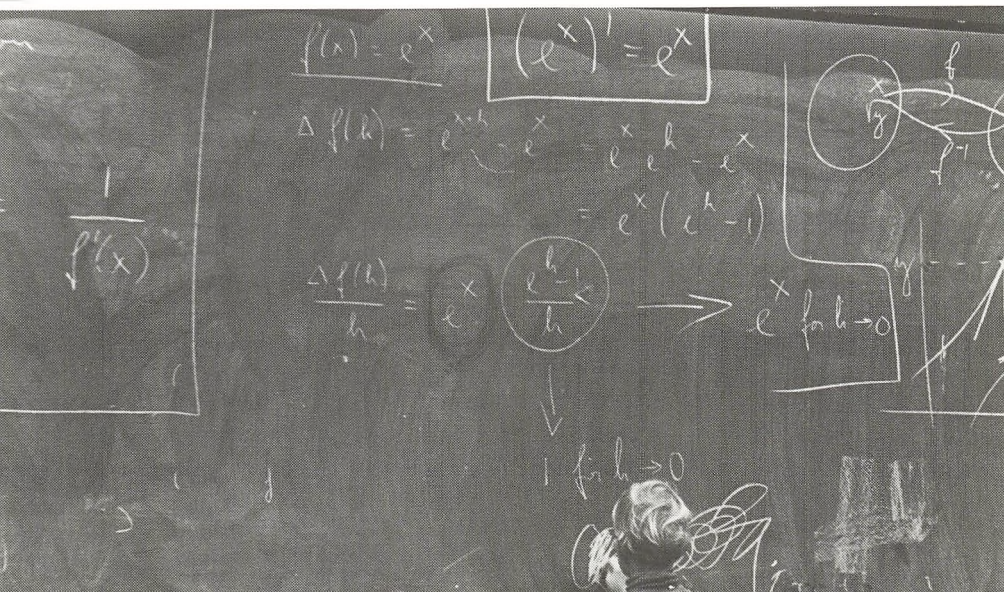 f(x) = e^x
(e^x)' = e^x
Δ f(h) = e^{x+h} - e^x = e^x e^h - e^x
= e^x (e^h - 1)
Δ f(h) / h = e^x (e^h - 1) / h → e^x for h → 0
↓
1 for h → 0
1 / f'(x)
x
y
f
f^{-1}
y